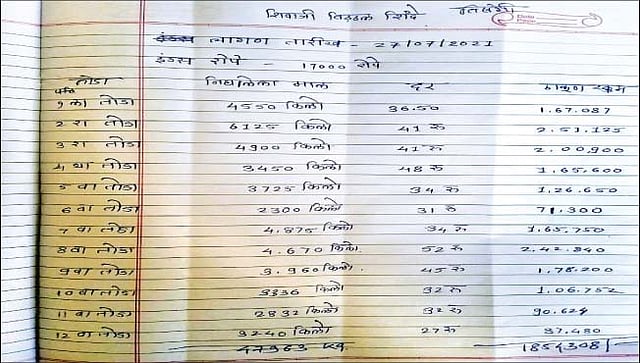 शिवाजी विठ्ठल शिंदे
इंडस लागण तारीख - 27/07/2021
इंडस रोपे - 17000 रोपे
तोडा निघालेला माल दर एकूण रक्कम
1 ला तोडा 4550 किलो 36.50 1.67.087
2 रा तोडा 6125 किलो 41 रु 2.51.125
3 रा तोडा 4900 किलो 41 रु 2.00.900
4 था तोडा 3450 किलो 48 रु 1.65.600
5 वा तोडा 3725 किलो 34 रु 1.26.650
6 वा तोडा 2300 किलो 31 रु 71.300
7 वा तोडा 4.875 किलो 34 रु 1.65.750
8 वा तोडा 4.670 किलो. 52 रु 2.42.840
9 वा तोडा 3.960 किलो. 45 रु 1.78.200
10 वा तोडा 3336 किलो 32 रु 1.06.752
11 वा तोडा 2832 किलो 32 रु 90.624
12 वा तोडा 3240 किलो 27 रु 87.480
47963 kg. 1854308/-